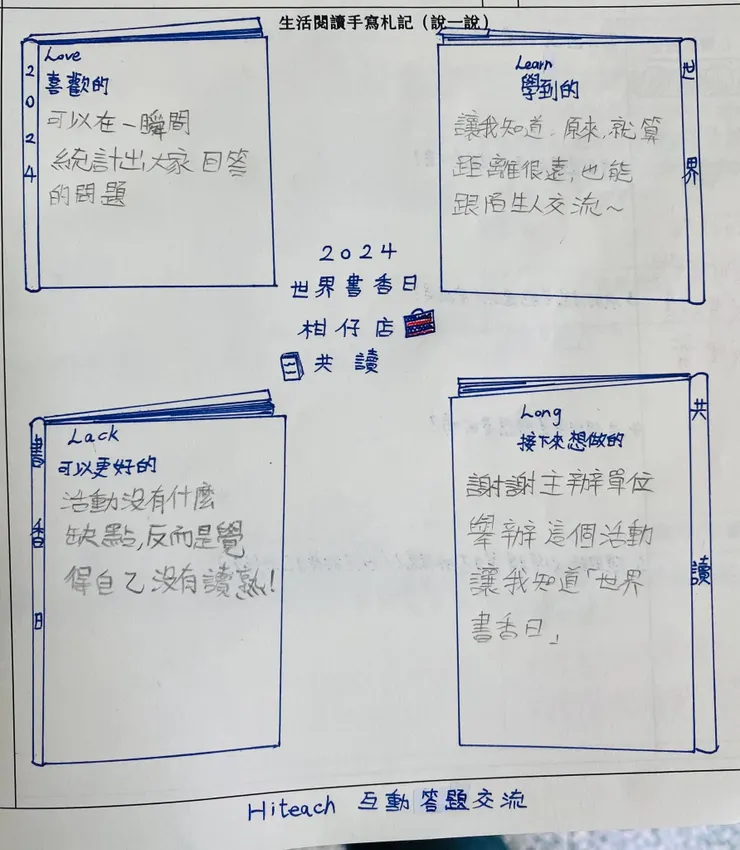 生活閱讀手寫札記（說一說）
2024
Love
喜歡的
可以在一瞬間
統計出大家回答
的問題
Learn
學到的
讓我知道，原來，就算
距離很遠，也能
跟陌生人交流～
世界
2024
世界書香日
柑仔店
共讀
書香日
Lack
可以更好的
活動沒有什麼
缺點，反而是覺
得自己沒有讀熟！
Long
接下來想做的
謝謝主辦單位
舉辦這個活動
讓我知道「世界
書香日」
共讀
Hiteach 互動答題交流